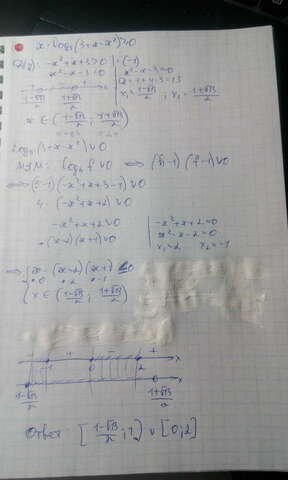 x · log₅(3+x-x²) ≥ 0
-x²+x+3>0 | ·(-1)
x²-x-3=0
x²-x-3<0
D=1+4·3=13
x₁=(1-√13)/2 ; x₂=(1+√13)/2
x ∈ ((1-√13)/2 ; (1+√13)/2)
log₅(3+x-x²) ∨ 0
МЗМ: log_h f ∨ 0 ⟺ (h-1)(f-1) ∨ 0
⟺ (5-1)(-x²+x+3-1) ∨ 0
4 · (-x²+x+2) ∨ 0
-x²+x+2 ∨ 0
-(x-2)(x+1) ∨ 0
-x²+x+2=0
x²-x-2=0
x₁=2 x₂=-1
x·(x-2)(x+1) ≤ 0
x ∈ ((1-√13)/2 ; (1+√13)/2)
- + - + x
-1 0 2
x
(1-√13)/2 (1+√13)/2
Ответ:
∪ [0;2]